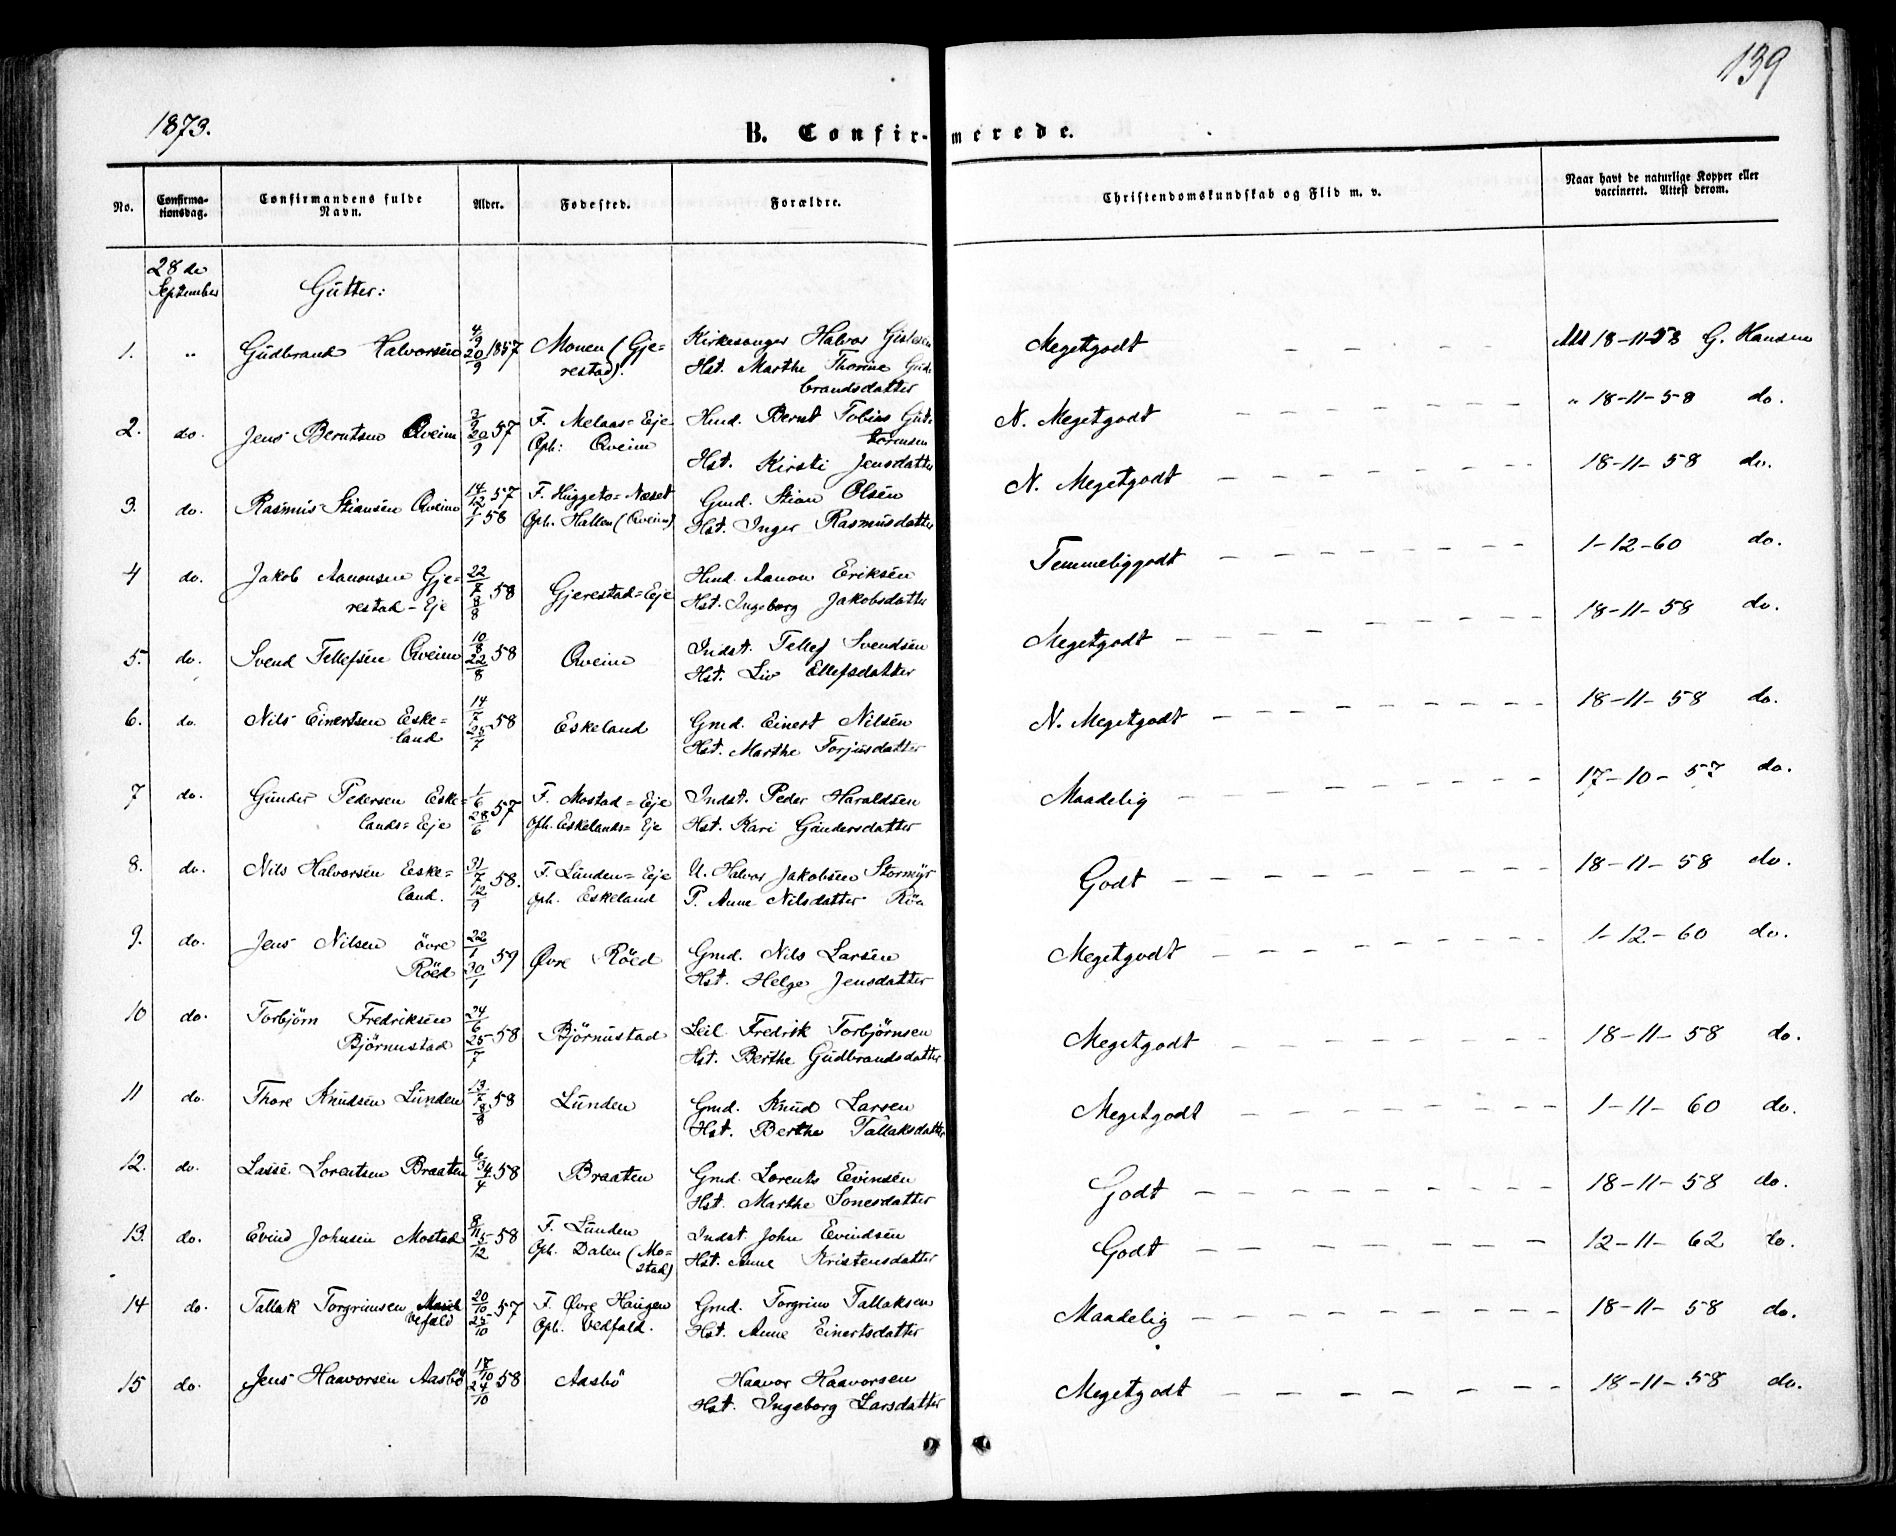 139
1873.
B. Confirmerede.
No. Confirmationsdag. Confirmandens fulde Navn. Alder. Fødested. Forældre. Christendomskundskab og Flid m. v. Naar havt de naturlige Kopper eller vaccineret. Attest derom.
28de September
Gutter:
1. " Gudbrand Halvorsen 4/9 20/9 1857 Monen (Gjerestad). Kirkesanger Halvor Gislesen Hst. Marthe Thorine Gudbrandsdatter Megetgodt Att 18-11-58 G. Hansen
2. do. Jens Berntsen Qveim 3/9 20/9 57 F. Melaas=Eje Oph: Qveim Hmd. Bernt Tobias Guttormsen Hst. Kirsti Jensdatter N. Megetgodt " 18-11-58 do.
3. do. Rasmus Stiansen Qveim 14/12 57 1/1 58 F. Huggeto=Næset Oph. Hallen (Qveim) Gmd. Stian Olsen Hst. Inger Rasmusdatter N. Megetgodt 18-11-58 do.
4 do. Jakob Aanonsen Gjerestad-Eje 22/7 8/8 58 Gjerestad=Eje Hmd. Aanon Eriksen Hst. Ingeborg Jakobsdatter Temmeliggodt 1-12-60 do.
5. do. Svend Tellefsen Qveim 10/8 22/8 58 Qveim Indst. Tellef Svendsen Hst. Liv Ellefsdatter Megetgodt 18-11-58 do.
6. do. Nils Einertsen Eskeland 14/7 25/7 58 Eskeland Gmd. Einert Nilsen Hst. Marthe Torjusdatter N. Megetgodt 18-11-58 do.
7 do. Gunder Pedersen Eskelands=Eje 1/6 28/6 57 F. Mostad=Eje Oph. Eskelands=Eje Indst. Peder Haraldsen Hst. Kari Gundersdatter Maadelig 17-10-57 do.
8. do. Nils Halvorsen Eskeland. 31/7 12/9 58. F. Lunden=Eje Oph. Eskeland U. Halvor Jakobsen Stormyr P. Anne Nilsdatter Röa Godt 18-11-58 do.
9. do. Jens Nilsen övre Röed 22/1 30/1 59 Øvre Röed Gmd. Nils Larsen Hst. Helge Jensdatter Megetgodt 1-12-60 do.
10 do. Torbjörn Fredriksen Björnustad 24/6 25/7 58 Björnustad Leil. Fredrik Torbjørnsen Hst. Berthe Gudbrandsdatter Megetgodt 18-11-58 do.
11 do. Thore Knudsen Lunden 13/7 8/8 58 Lunden Gmd. Knud Larsen Hst. Berthe Tallaksdatter Megetgodt 1-11-60 do.
12. do. Lasse Lorentsen Braaten 58 Braaten Gmd. Lorents Evinsen Hst. Marthe Sonesdatter Godt 18-11-58 do.
13. do. Evind Johnsen Mostad 8/11 5/12 58 F. Lunden Oph. Dalen (Mostad) Indst. John Evindsen Hst. Anne Kristensdatter Godt 12-11-62 do.
14 do. Tallak Torgrimsen Vefald 20/10 25/10 57 F. Øvre Haugen Oph. Vedfald. Gmd. Torgrim Tallaksen Hst. Anne Einertsdatter Maadelig 18-11-58 do.
15 do. Jens Haavorsen Aasbö 17/10 24/10 58 Aasbö Haavor Haavorsen Hst. Ingeborg Larsdatter Megetgodt 18-11-58 do.